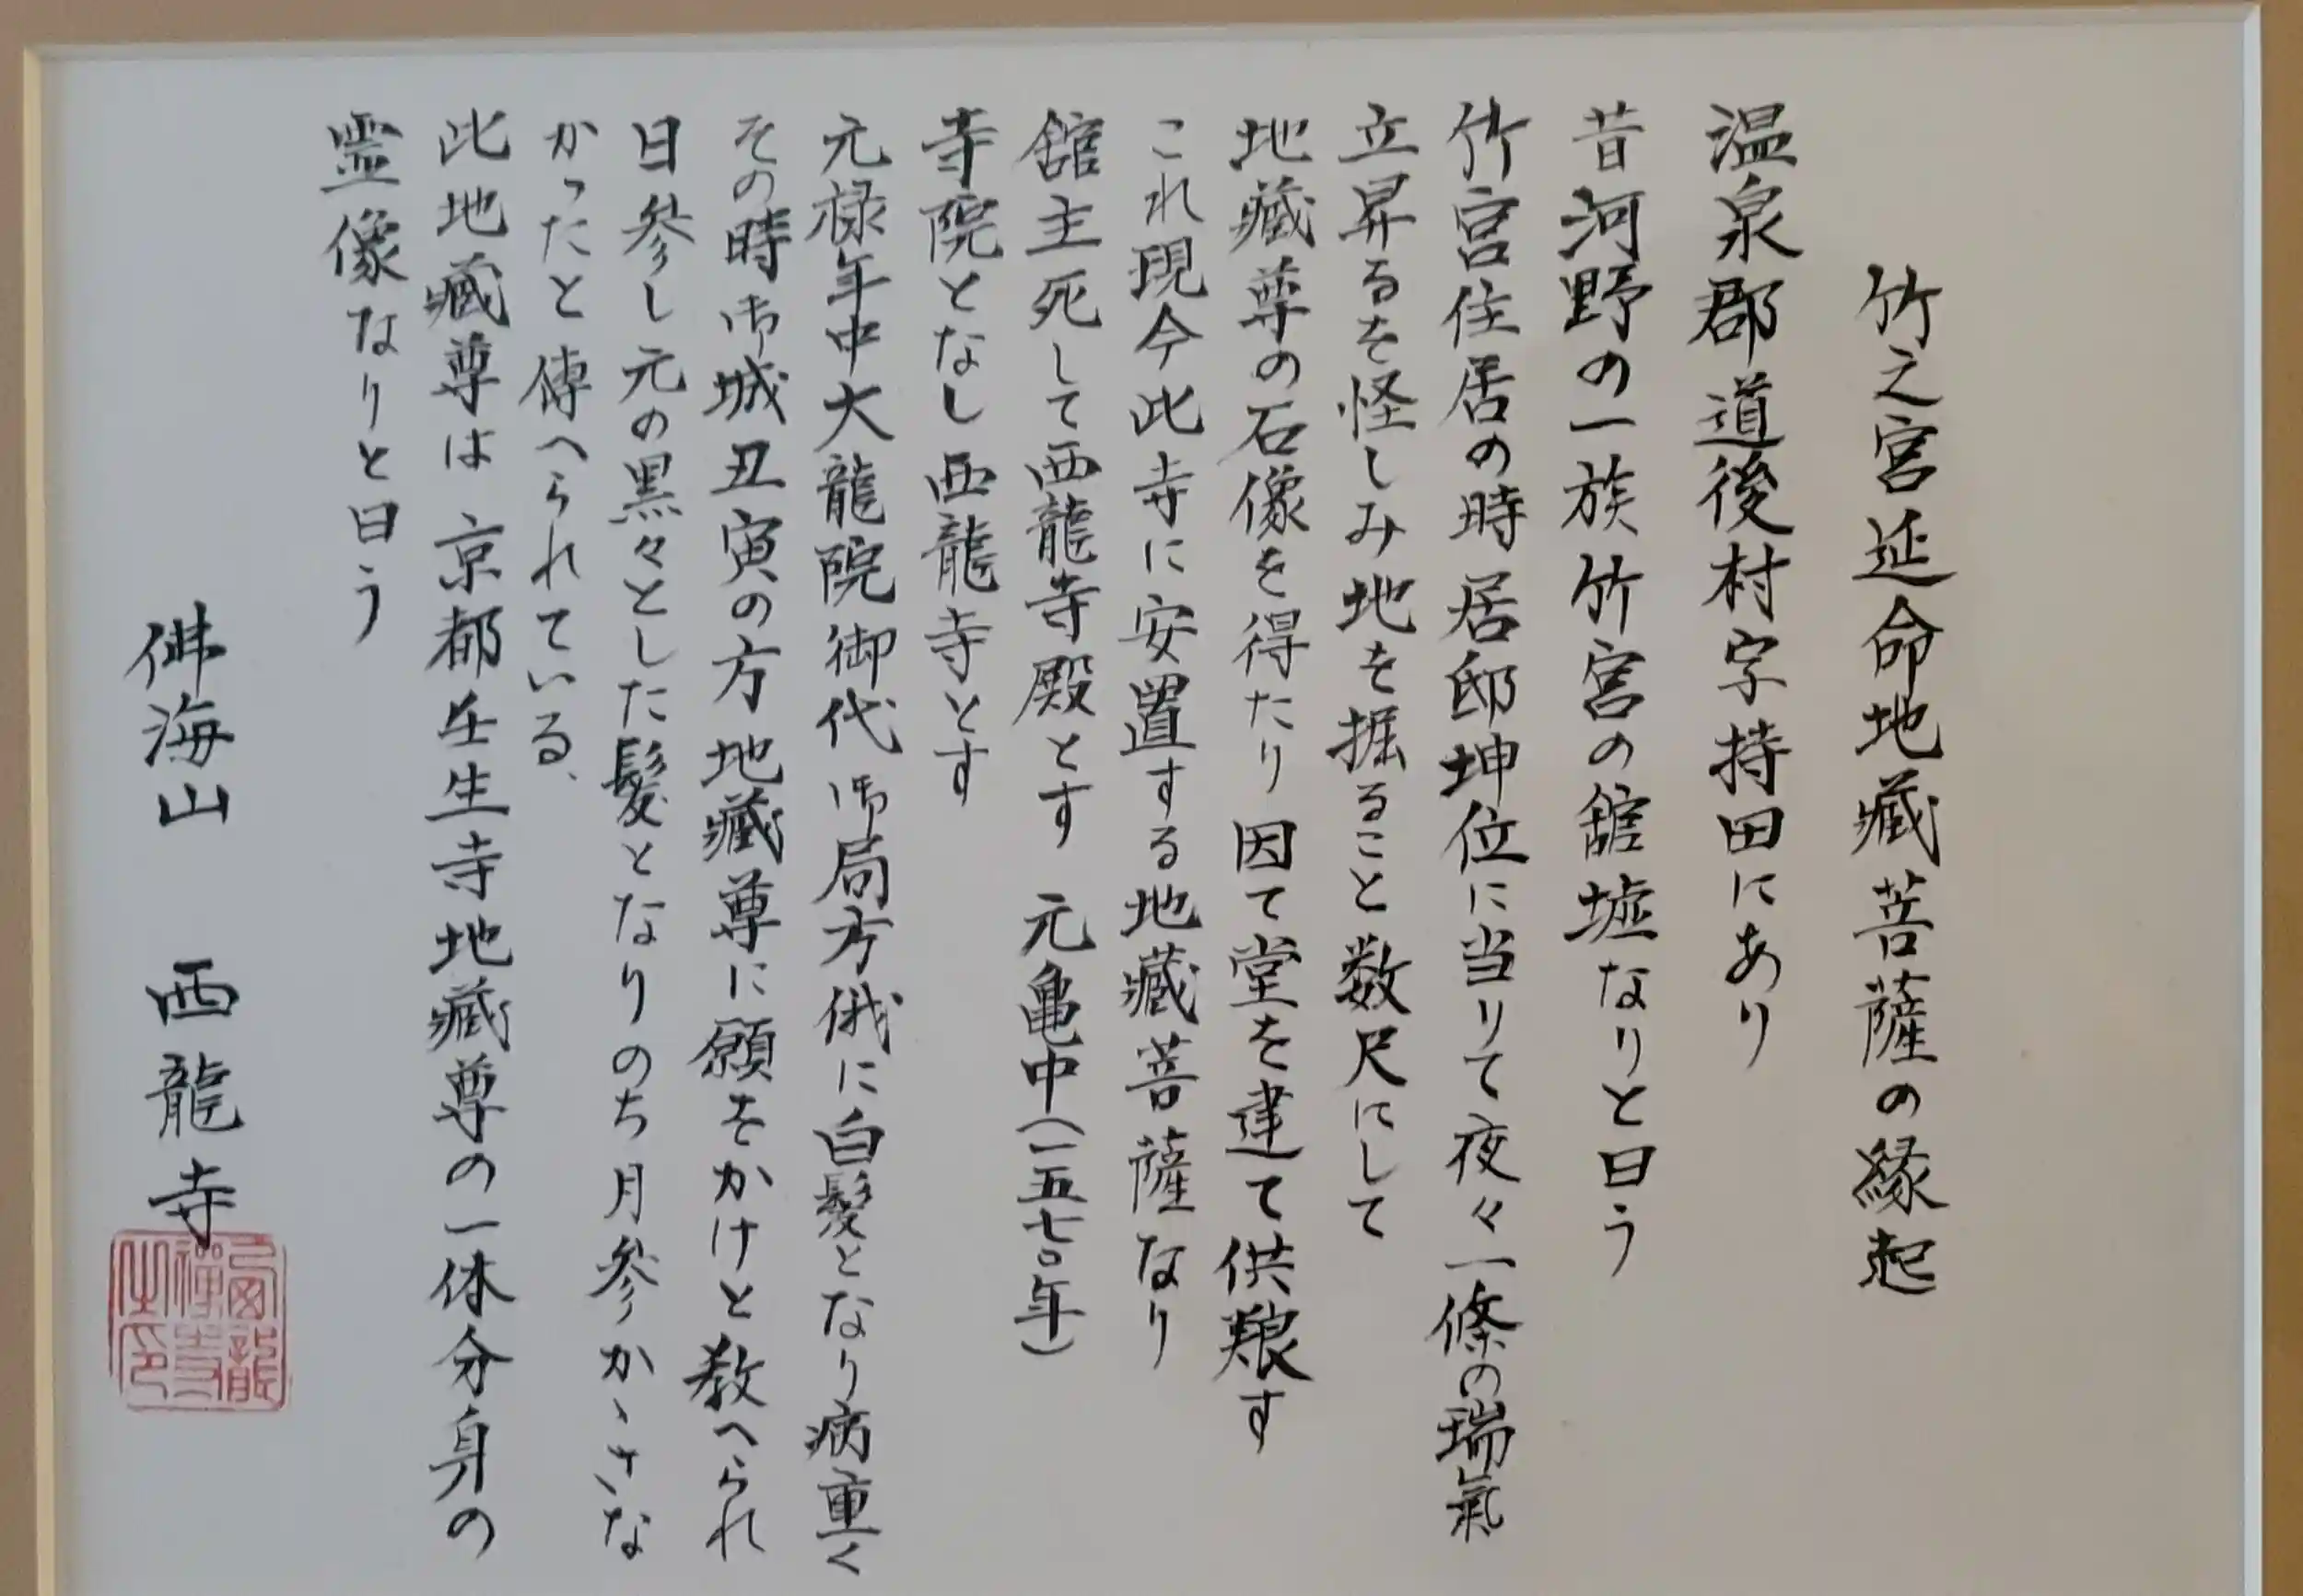 竹之宮延命地藏菩薩の縁起
温泉郡道後村字持田にあり
昔河野の一族竹宮の舘墟なりと曰う
竹宮住居の時居邸坤位に当りて夜々一條の瑞氣
立昇るを怪しみ地を掘ること数尺にして
地藏尊の石像を得たり因て堂を建て供粮す
これ現今此寺に安置する地藏菩薩なり
舘主死して西龍寺殿とす 元亀中(一五七〇年)
寺院となし西龍寺とす
元禄年中大龍院御代御局方俄に白髪となり病重く
その時御城丑寅の方地藏尊に願をかけと教へられ
日参し元の黒々とした髪となりのち月参かゝさな
かったと傳へられている、
此地藏尊は京都壬生寺地藏尊の一体分身の
霊像なりと曰う
佛海山 西龍寺
西龍禅寺之印